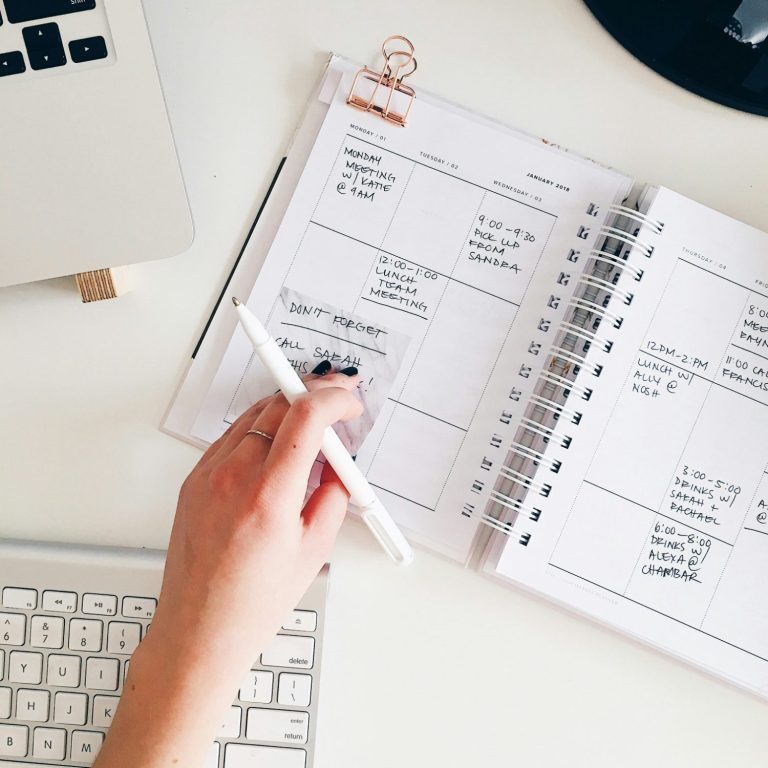 MONDAY / 01
MONDAY
MEETING
W/ KATIE
@ 9AM
TUESDAY / 02
12:00-1:00
LUNCH
TEAM
MEETING
JANUARY 2018
WEDNESDAY / 03
9:00-9:30
PICK UP
FROM
SANDRA
DON'T FORGET
CALL SARAH
THIS
THURSDAY / 04
12PM-2PM
LUNCH W/
ALLY @
NOSH
3:00-5:00
DRINKS W/
SARAH +
RACHAEL
6:00-8:00
DRINKS W/
ALEXA @
CHAMBAR
8:0
MEE
11:00 CA
@
shift
F6
F7
F8
F9
^ 6
& 7
* 8
( 9
Y U
} ]
delete
B N M
J K
enter
return